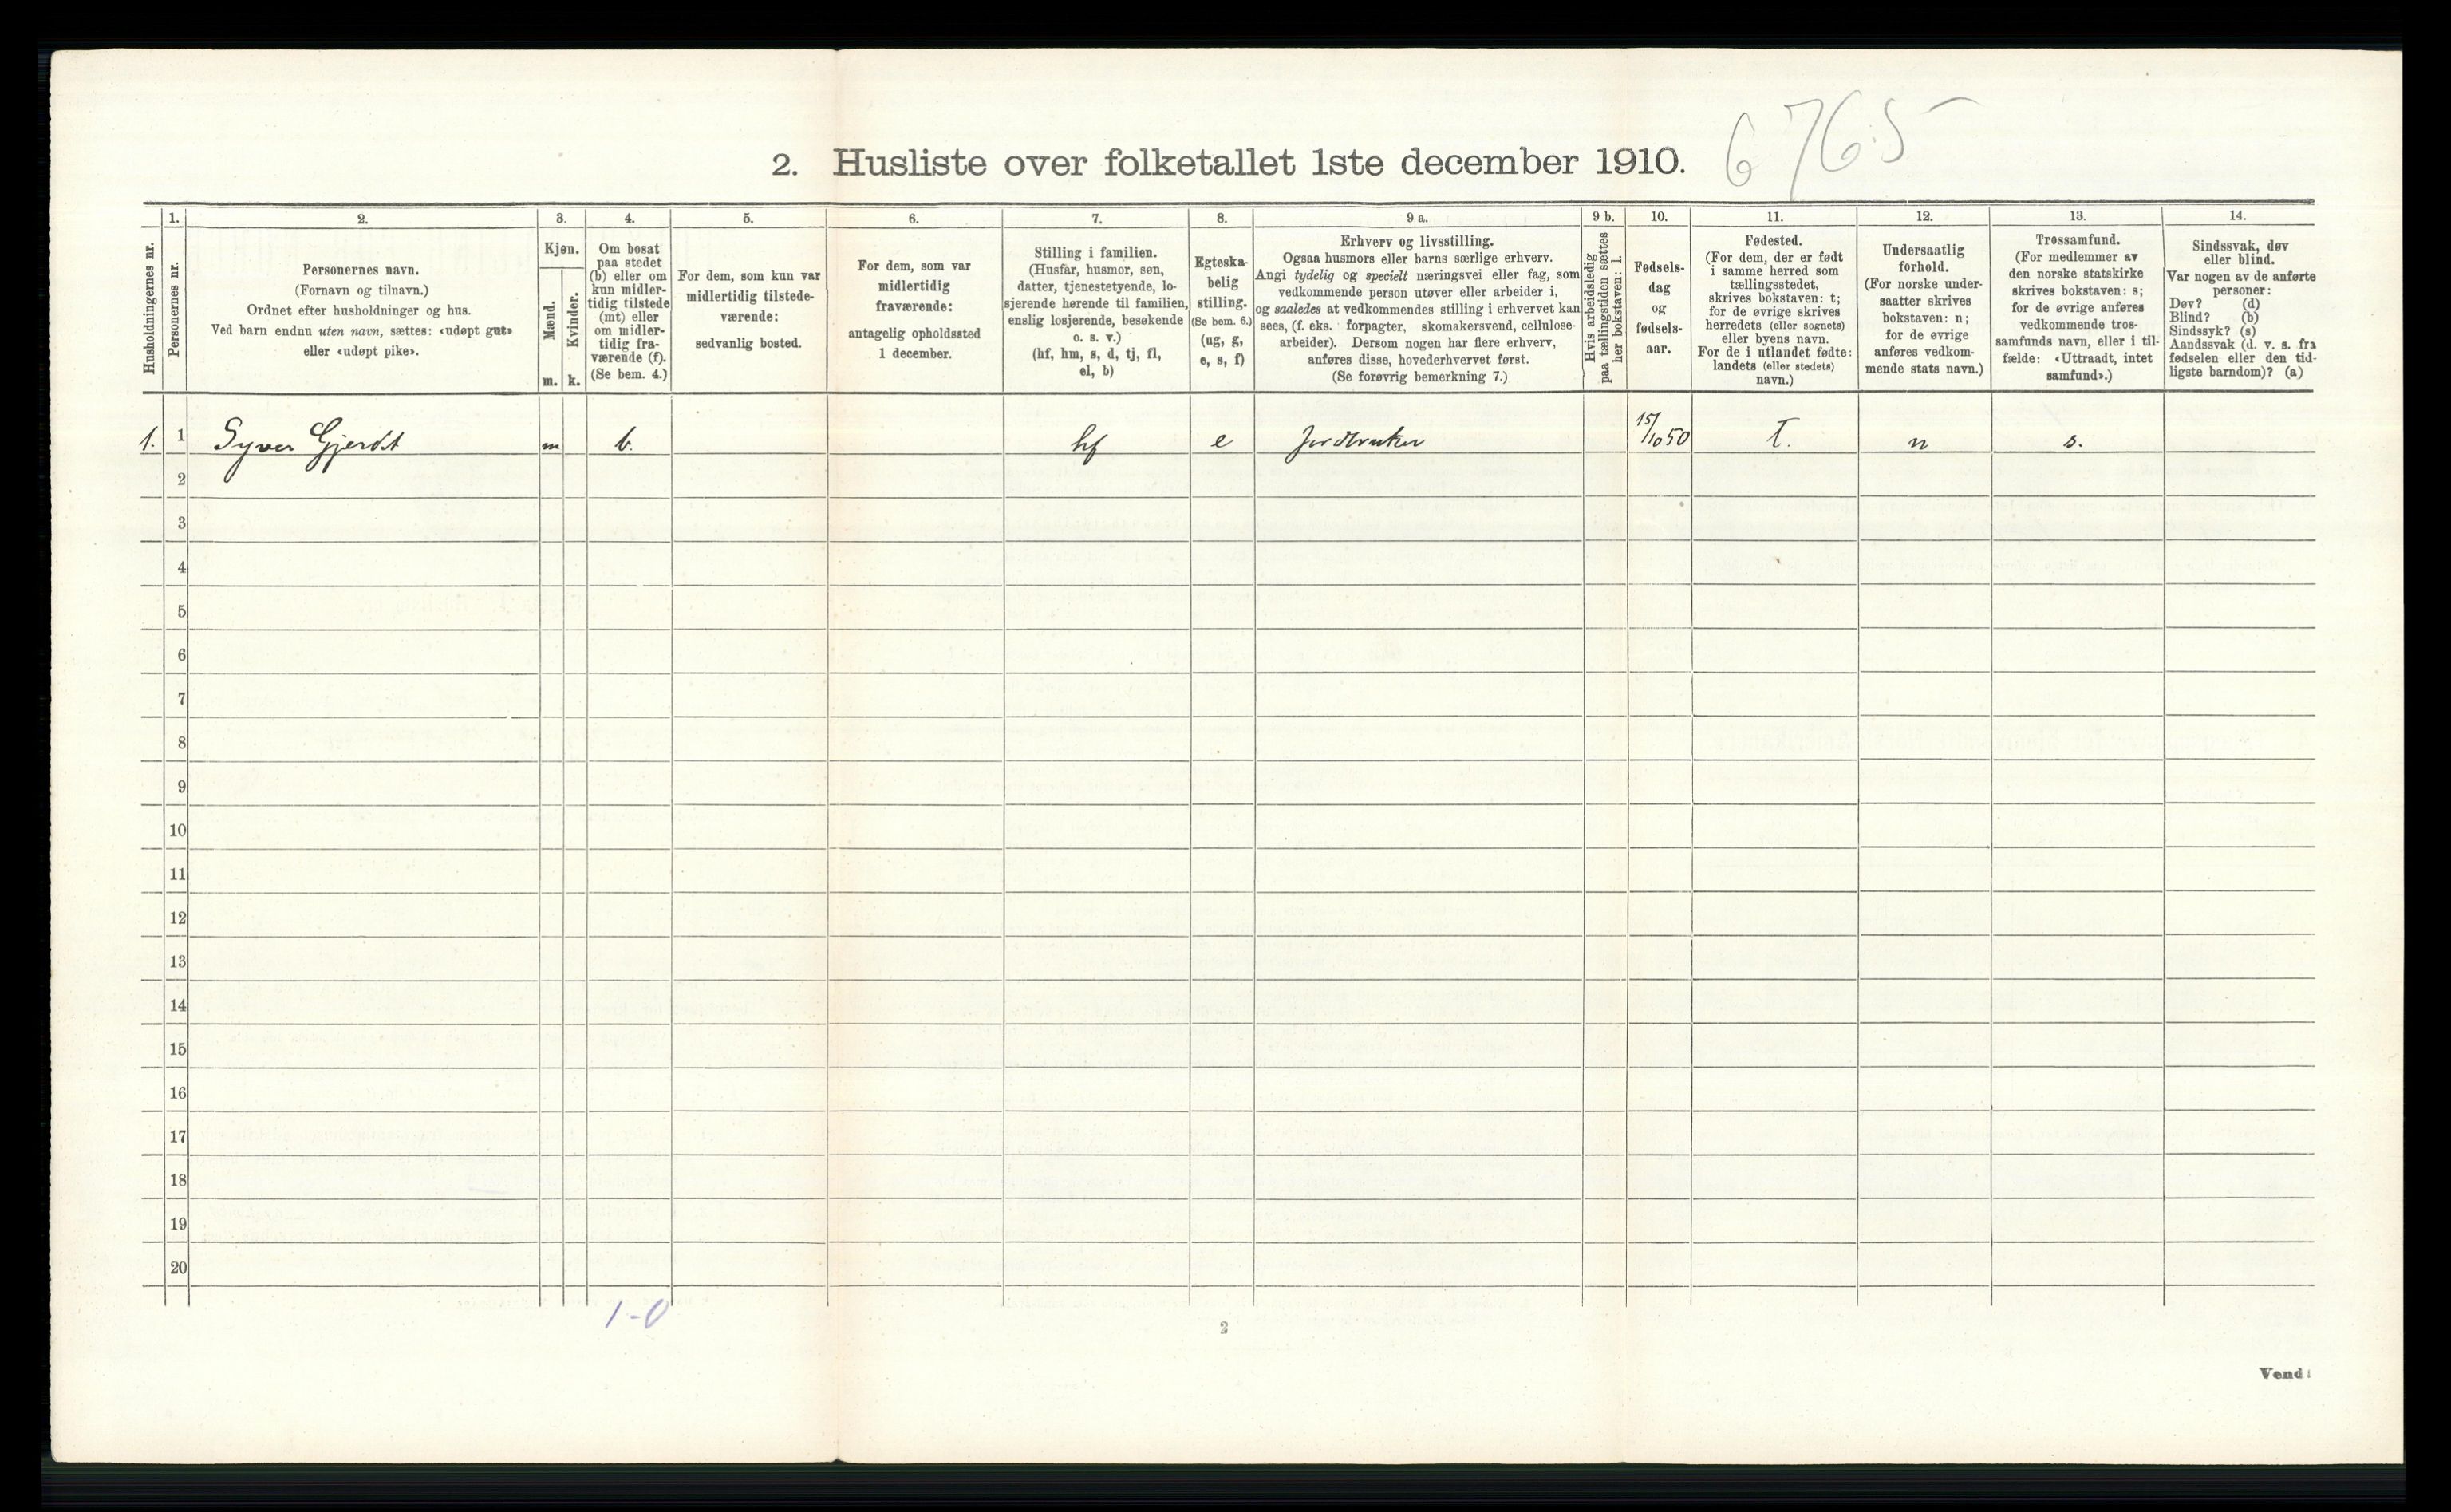 6765
2. Husliste over folketallet 1ste december 1910.
Husholdningernes nr.
1.
Personernes nr.
2.
Personernes navn.
(Fornavn og tilnavn.)
Ordnet efter husholdninger og hus.
Ved barn endnu uten navn, sættes: «udøpt gut»
eller «udøpt pike».
3.
Kjøn.
Mænd.
m.
Kvinder.
k.
4.
Om bosat
paa stedet
(b) eller om
kun midler-
tidig tilstede
(mt) eller
om midler-
tidig fra-
værende (f).
(Se bem. 4.)
5.
For dem, som kun var
midlertidig tilstede-
værende:
sedvanlig bosted.
6.
For dem, som var
midlertidig
fraværende:
antagelig opholdssted
1 december.
7.
Stilling i familien.
(Husfar, husmor, søn,
datter, tjenestetyende, lo-
sjerende hørende til familien,
enslig losjerende, besøkende
o. s. v.)
(hf, hm, s, d, tj, fl,
el, b)
8.
Egteska-
belig
stilling.
(Se bem. 6.)
(ug, g,
e, s, f)
9 a.
Erhverv og livsstilling.
Ogsaa husmors eller barns særlige erhverv.
Angi tydelig og specielt næringsvei eller fag, som
vedkommende person utøver eller arbeider i,
og saaledes at vedkommendes stilling i erhvervet kan
sees, (f. eks. forpagter, skomakersvend, cellulose-
arbeider). Dersom nogen har flere erhverv,
anføres disse, hovederhvervet først.
(Se forøvrig bemerkning 7.)
9 b.
Hvis arbeidsledig
paa tællingstiden sættes
her bokstaven: l.
10.
Fødsels-
dag
og
fødsels-
aar.
11.
Fødested.
(For dem, der er født
i samme herred som
tællingsstedet,
skrives bokstaven: t;
for de øvrige skrives
herredets (eller sognets)
eller byens navn.
For de i utlandet fødte:
landets (eller stedets)
navn.)
12.
Undersaatlig
forhold.
(For norske under-
saatter skrives
bokstaven: n;
for de øvrige
anføres vedkom-
mende stats navn.)
13.
Trossamfund.
(For medlemmer av
den norske statskirke
skrives bokstaven: s;
for de øvrige anføres
vedkommende tros-
samfunds navn, eller i til-
fælde: «Uttraadt, intet
samfund».)
14.
Sindssvak, døv
eller blind.
Var nogen av de anførte
personer:
Døv? (d)
Blind? (b)
Sindssyk? (s)
Aandssvak (d. v. s. fra
fødselen eller den tid-
ligste barndom)? (a)
1. 1 Syver Gjerdt m b. hf e Jordbruker 15/10 50 T. n s.
2
3
4
5
6
7
8
9
10
11
12
13
14
15
16
17
18
19
20
1-0
2
Vend!